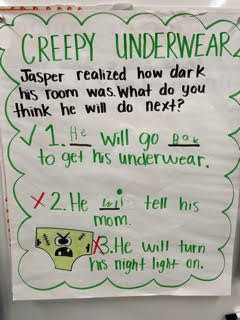 CREEPY UNDERWEAR
Jasper realized how dark
his room was. What do you
think he will do next?
✓ 1. He will go Bak
to get his underwear.
X 2. He wi tell his
mom.
X 3. He will turn
his night light on.